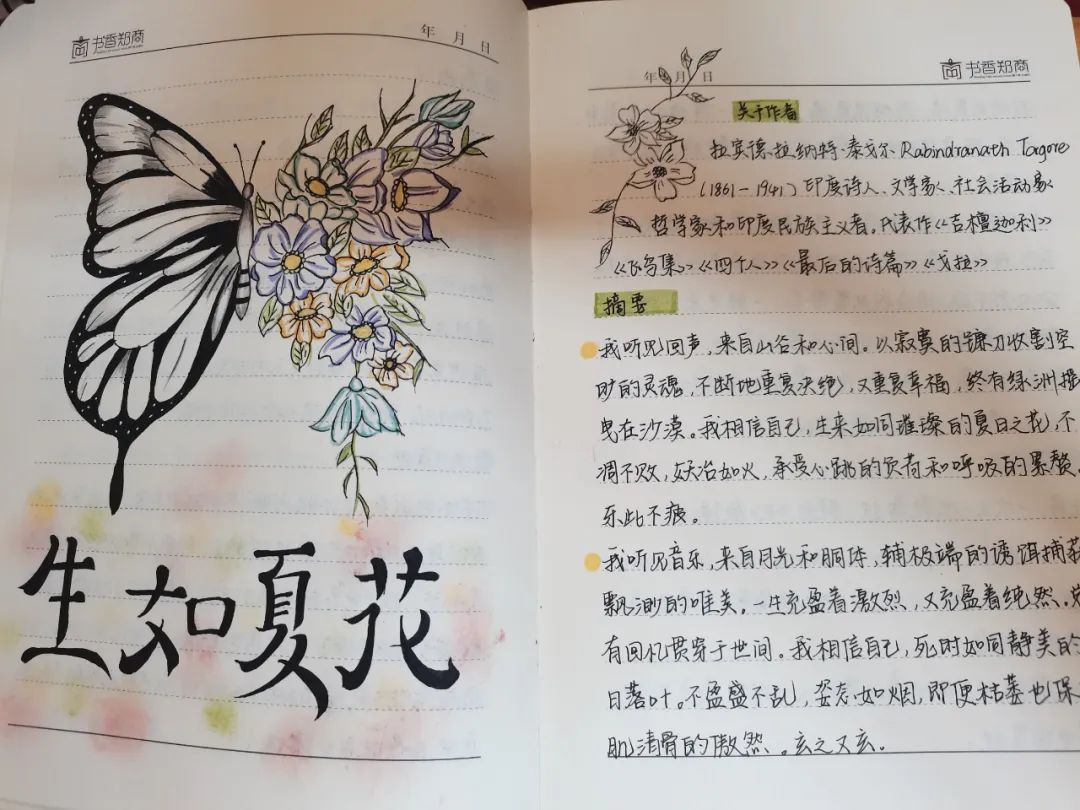 书香郑商
年 月 日
生如夏花
年 月 日
书香郑商
关于作者
拉宾德拉纳特·泰戈尔 Rabindranath Tagore
(1861-1941) 印度诗人、文学家、社会活动家
哲学家和印度民族主义者。代表作《吉檀迦利》
《飞鸟集》《四个人》《最后的诗篇》《戈拉》
摘要
我听见回声,来自山谷和心间。以寂寞的镰刀收割空
旷的灵魂,不断地重复决绝,又重复幸福,终有绿洲摇
曳在沙漠。我相信自己,生来如同璀璨的夏日之花,不
凋不败,妖冶如火,承受心跳的负荷和呼吸的累赘,
乐此不疲。
我听见音乐,来自月光和胴体,辅极端的诱饵捕获
飘渺的唯美。一生充盈着激烈,又充盈着纯然。总
有回忆贯穿于世间。我相信自己,死时如同静美的
日落叶。不盈盛不乱,姿态如烟,即便枯萎也保
肌清骨的傲然。玄之又玄。